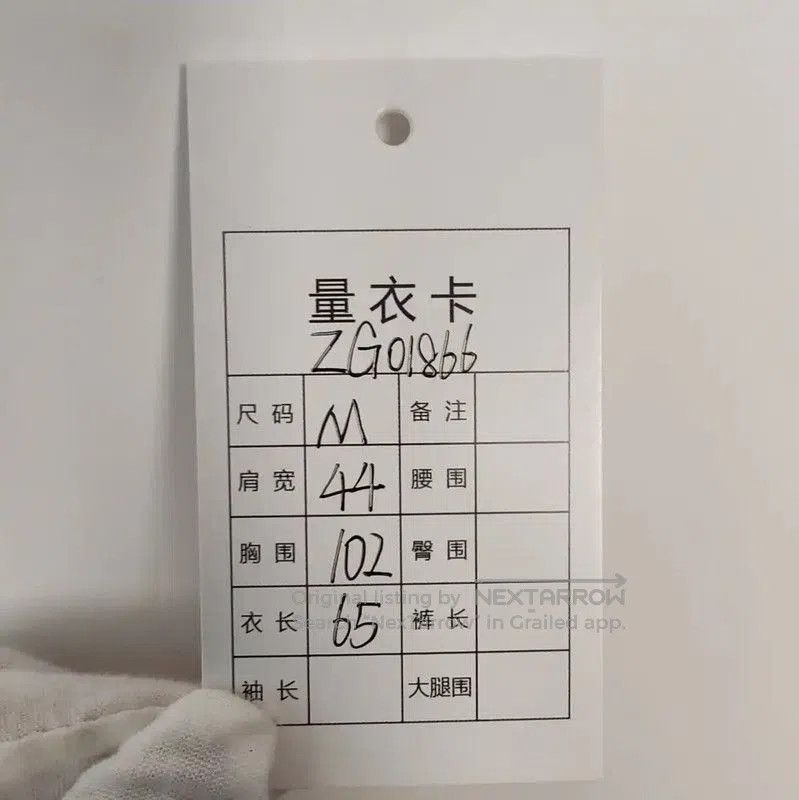 量衣卡
ZG01866
尺码 M 备注
肩宽 44 腰围
胸围 102 臀围
Original listing by NEXTARROW
衣长 65 裤长
Search "NexTArrow" in Grailed app.
袖长 大腿围